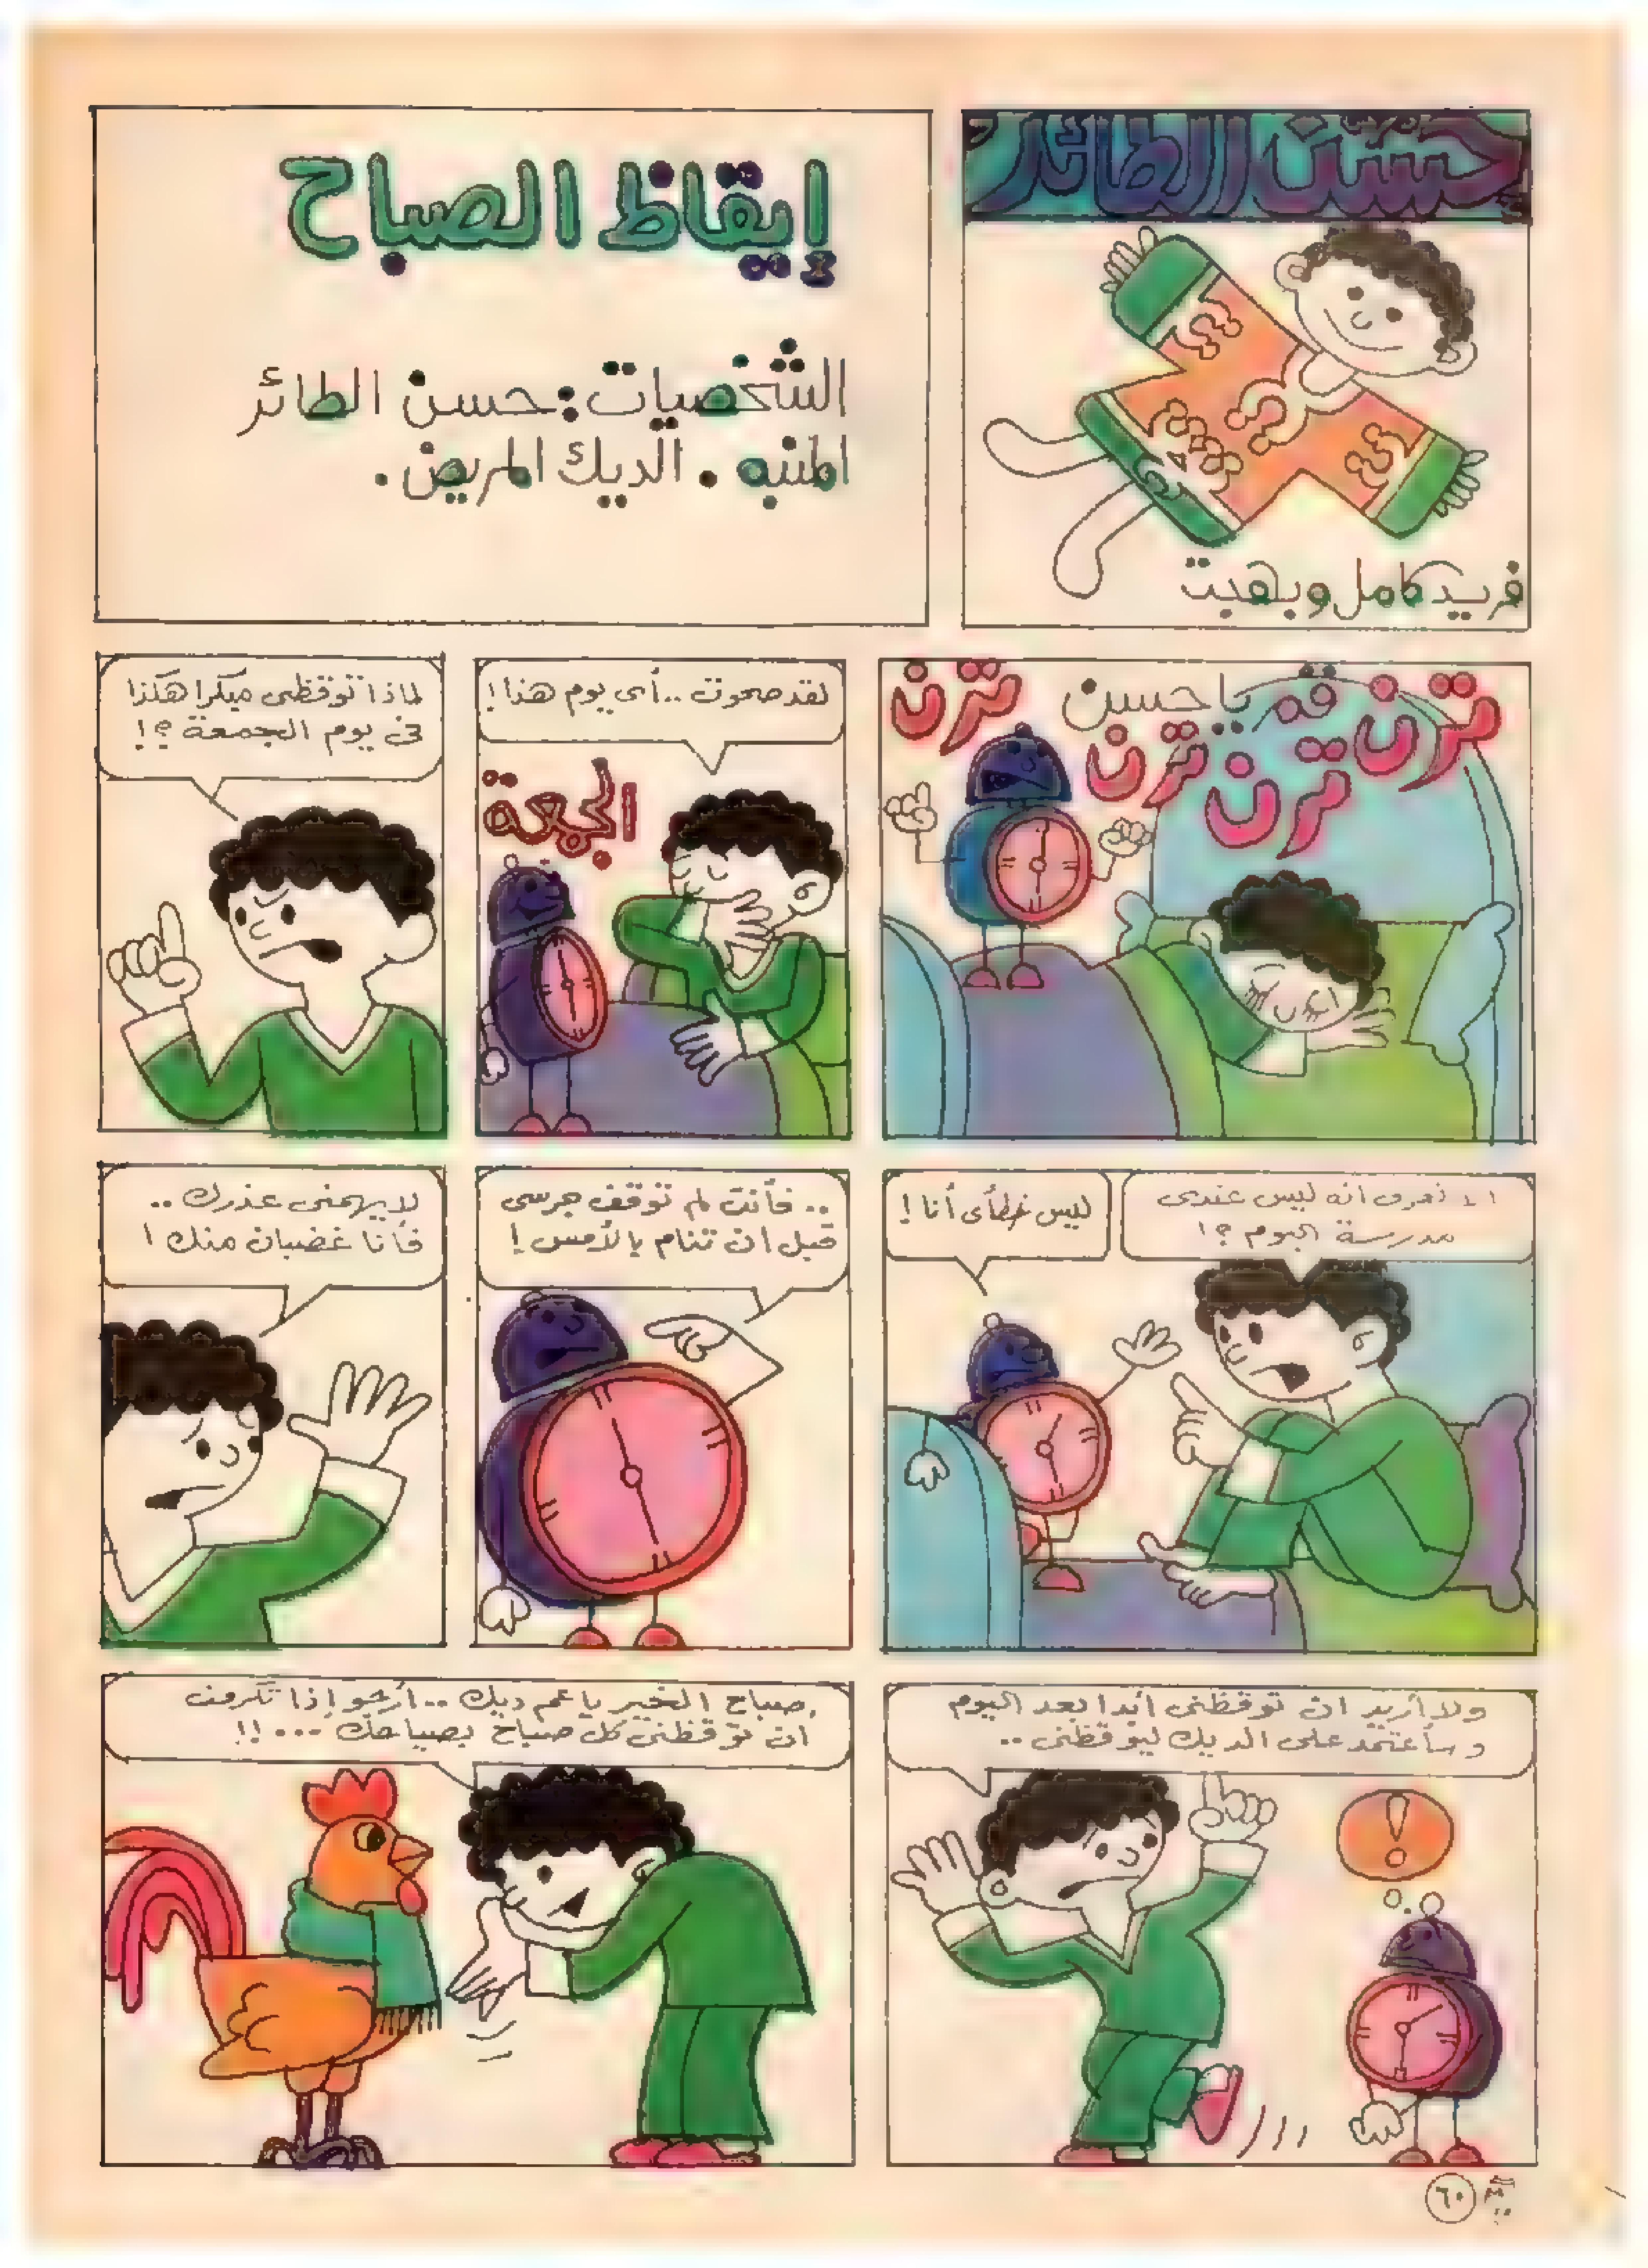 حسن الطائر
فريد كامل وبهجت
إيقاظ الصباح
الشخصيات: حسن الطائر
المنبه . الديك المريض .
ترن
قم يا حسن
ترن
ترن
ترن
ترن
لقد صحوت .. أى يوم هذا !
الجمعة
لماذا توقظى مبكرا هكذا
فى يوم الجمعة ؟!
تعرف انه ليس عندى
مدرسة اليوم ؟!
ليس خطأى أنا !
.. فأنت لم توقف جرسى
قبل ان تنام بالأمس !
لا يهمنى عذرك ..
فأنا غضبان منك !
ولا أريد ان توقظنى أبدا بعد اليوم
وسأعتمد على الديك ليوقظنى ..
!
صباح الخير يا عم ديك .. أرجو إذا تكرمت
ان توقظنى كل صباح بصياحك ... !!
٦٠